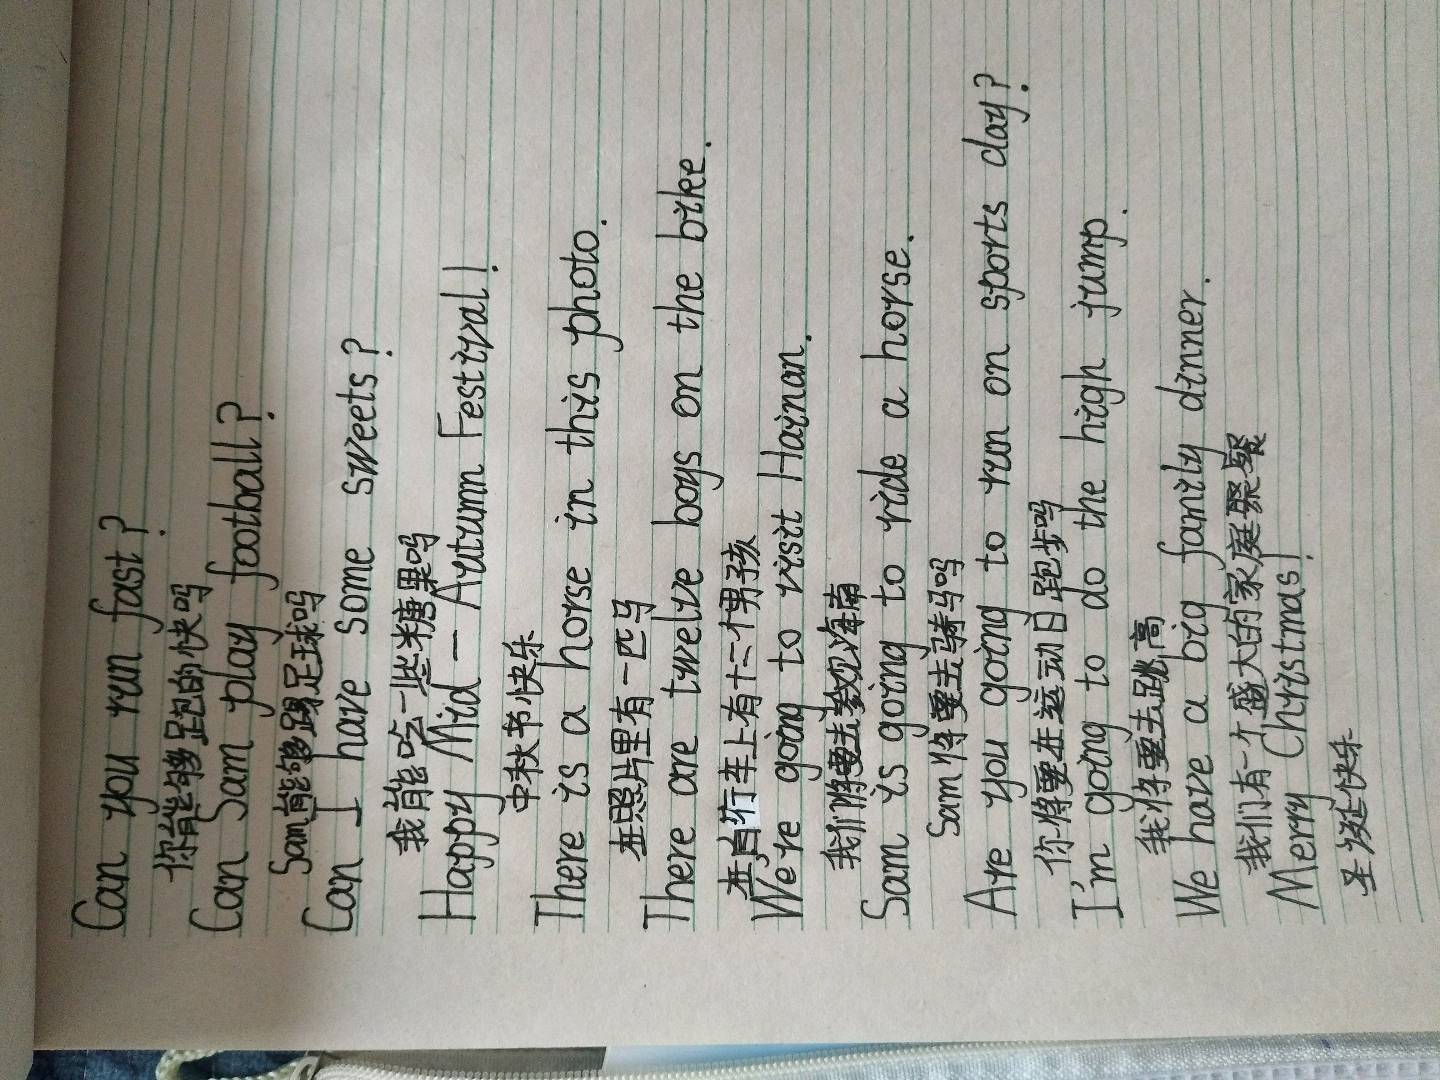 Can you run fast?
你能够跑的快吗
Can Sam play football?
Sam能够踢足球吗
Can I have some sweets?
我能吃一些糖果吗
Happy Mid-Autumn Festival!
中秋书快乐
There is a horse in this photo.
在照片里有一匹马
There are twelve boys on the bike.
在自行车上有十二个男孩
We're going to visit Hainan.
我们将要去参观海南
Sam is going to ride a horse.
Sam将要去骑马吗
Are you going to run on sports day?
你将要在运动日跑步吗
I'm going to do the high jump.
我将要去跳高
We have a big family dinner.
我们有一个盛大的家庭聚餐
Merry Christmas!
圣诞快乐